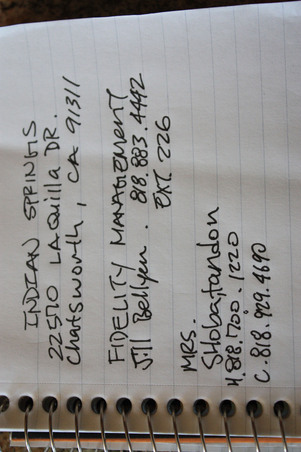 INDIAN SPRINGS
22570 LA Quilla DR.
Chatsworth, CA 91311
FIDELITY MANAGEMENT
Jill Bellyen. 818.883.4442
EXT. 226
MRS.
Shobatandon
H. 818.700.1220
C. 818.929.4690